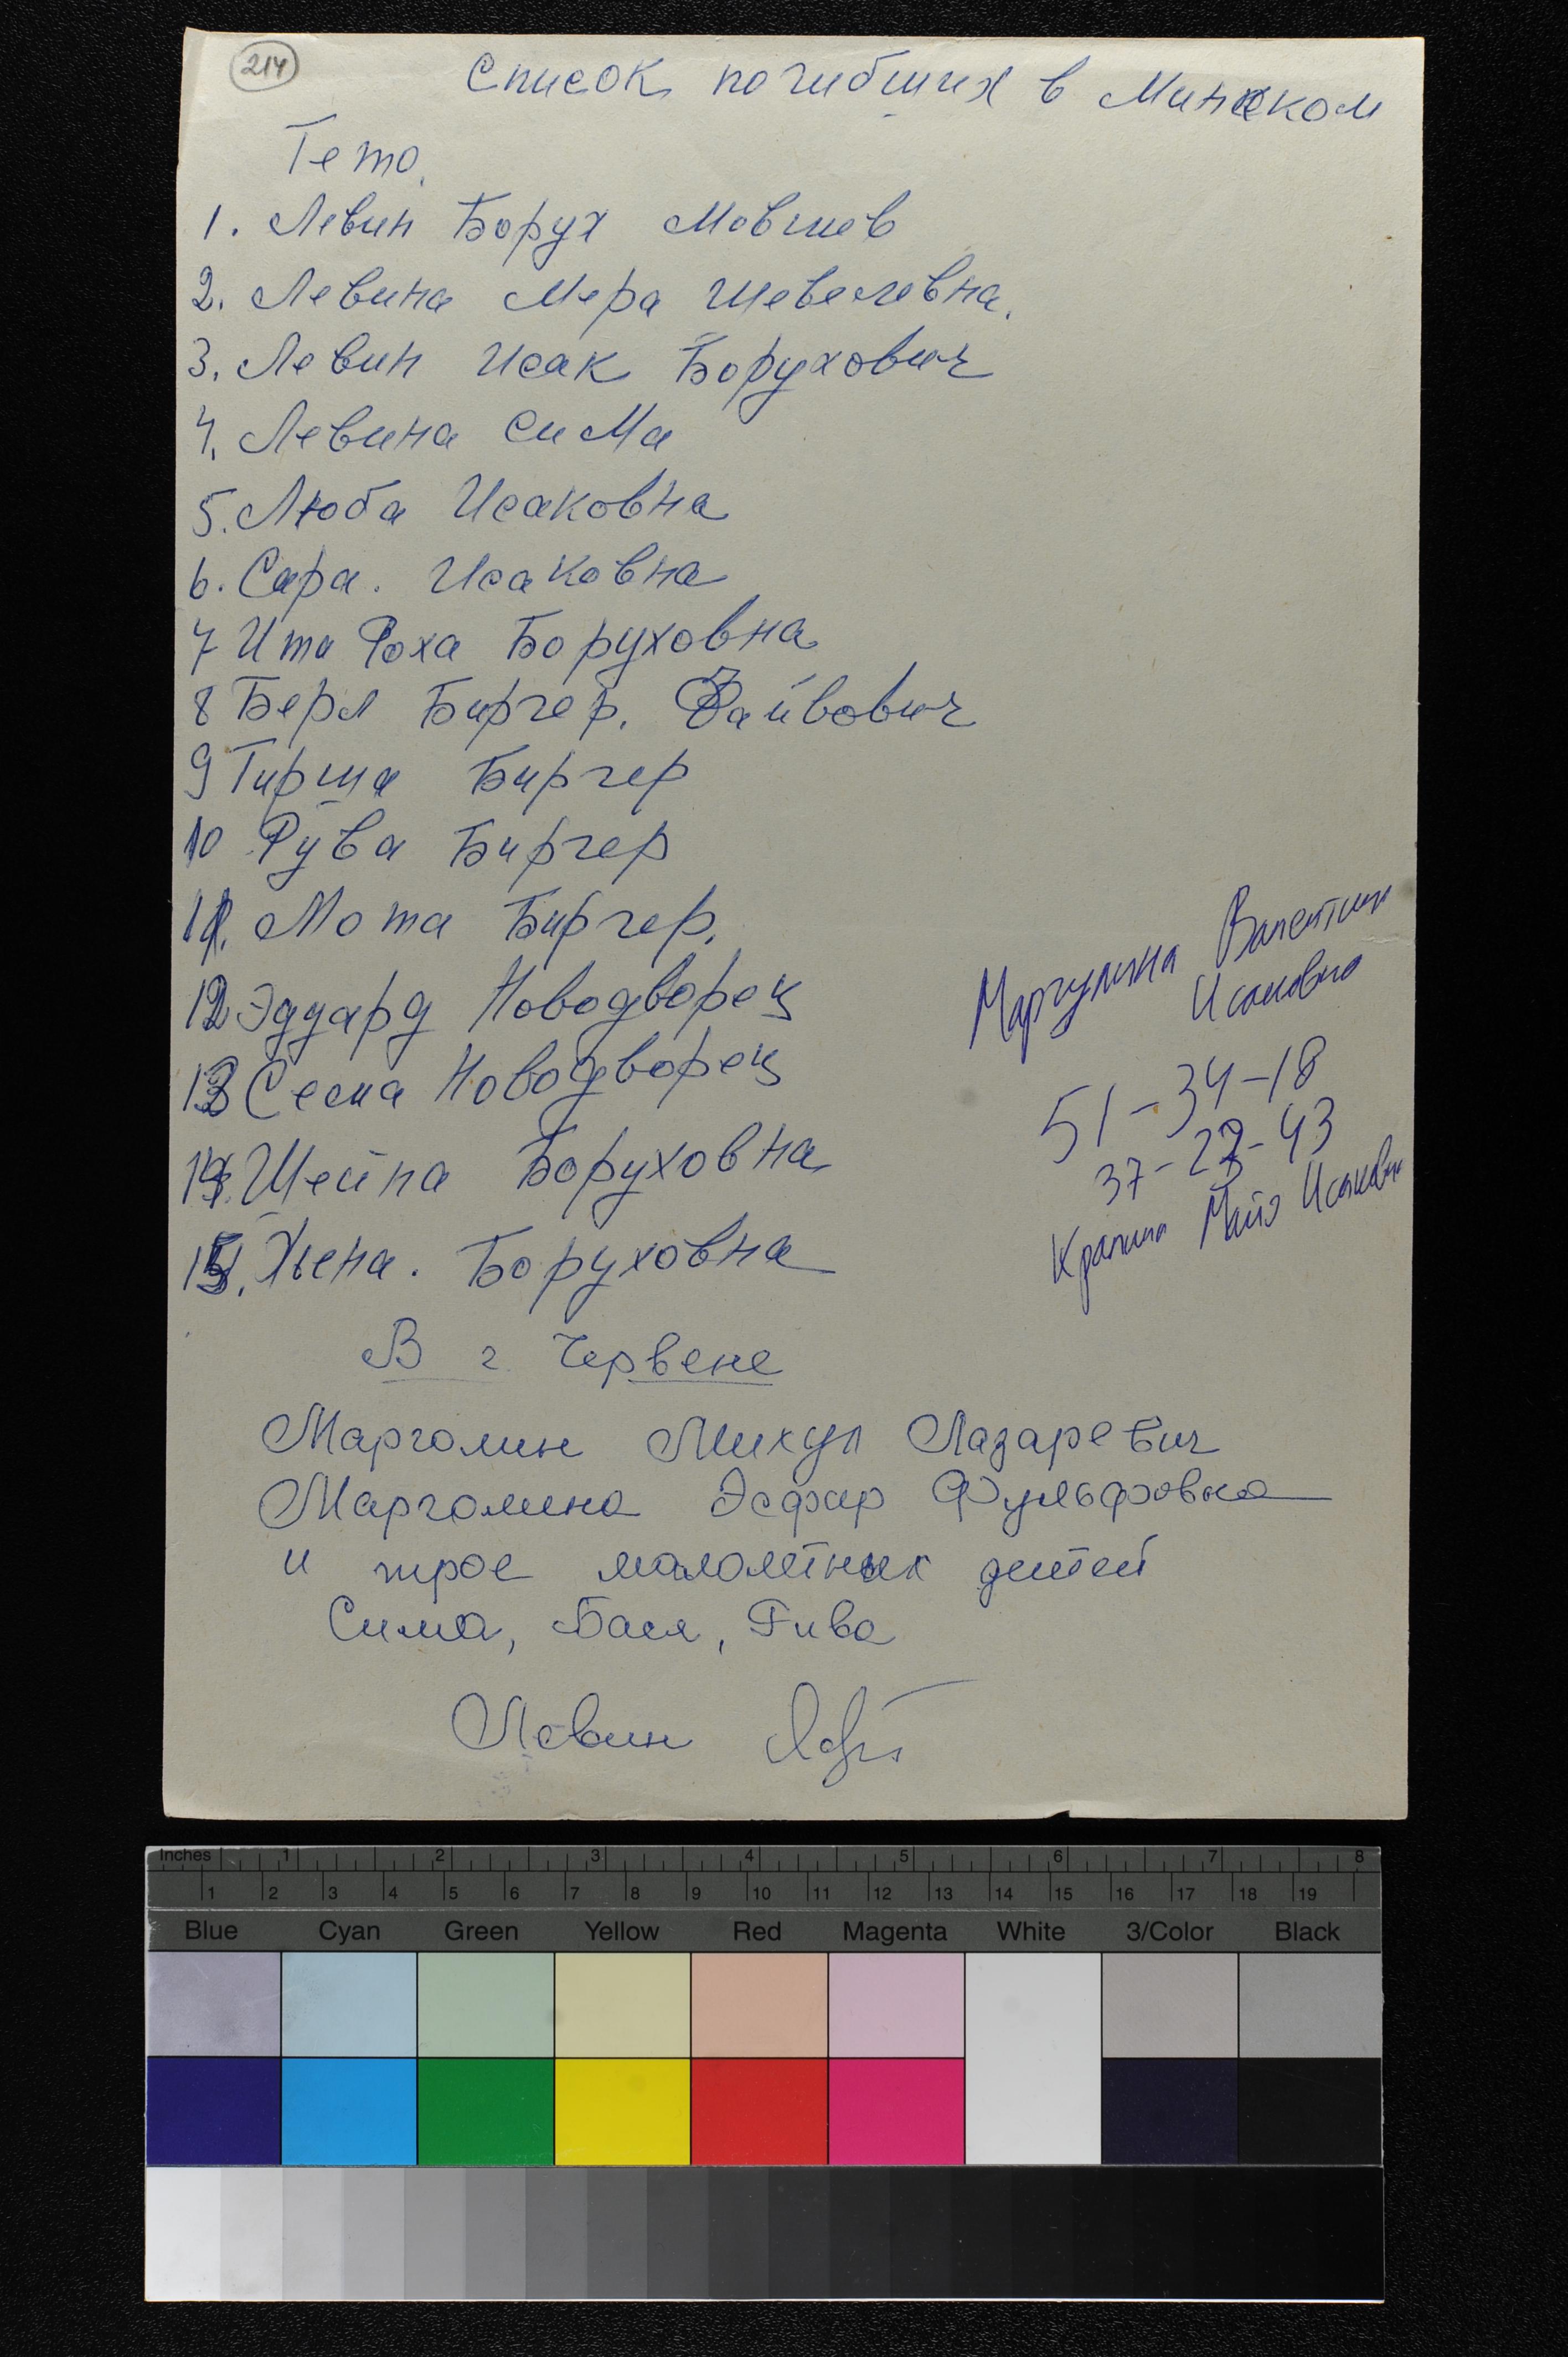 214
Список погибших в Минском
Гето.
1. Левин Борух Мовшев
2. Левина Мера Шевелевна.
3. Левин Исак Борухович
4. Левина Сима
5. Люба Исаковна
6. Сара. Исаковна
7 Ита Роха Боруховна
8 Берл Биргер. Файвович
9 Гирша Биргер
10 Рува Биргер
11. Мота Биргер.
12 Эдуард Новодворец
13 Сема Новодворец
14. Шейна Боруховна
15. Хьена. Боруховна
Маргулина Валентина
Исаковна
51-34-18
37-27-43
Крапина Майя Исаковна
В г. Червене
Марголин Михул Лазаревич
Марголина Эсфир Фульфовна
и трое малолетних детей
Сима, Бася, Рива
Левин
Inches 1 2 3 4 5 6 7 8
1 2 3 4 5 6 7 8 9 10 11 12 13 14 15 16 17 18 19
Blue Cyan Green Yellow Red Magenta White 3/Color Black